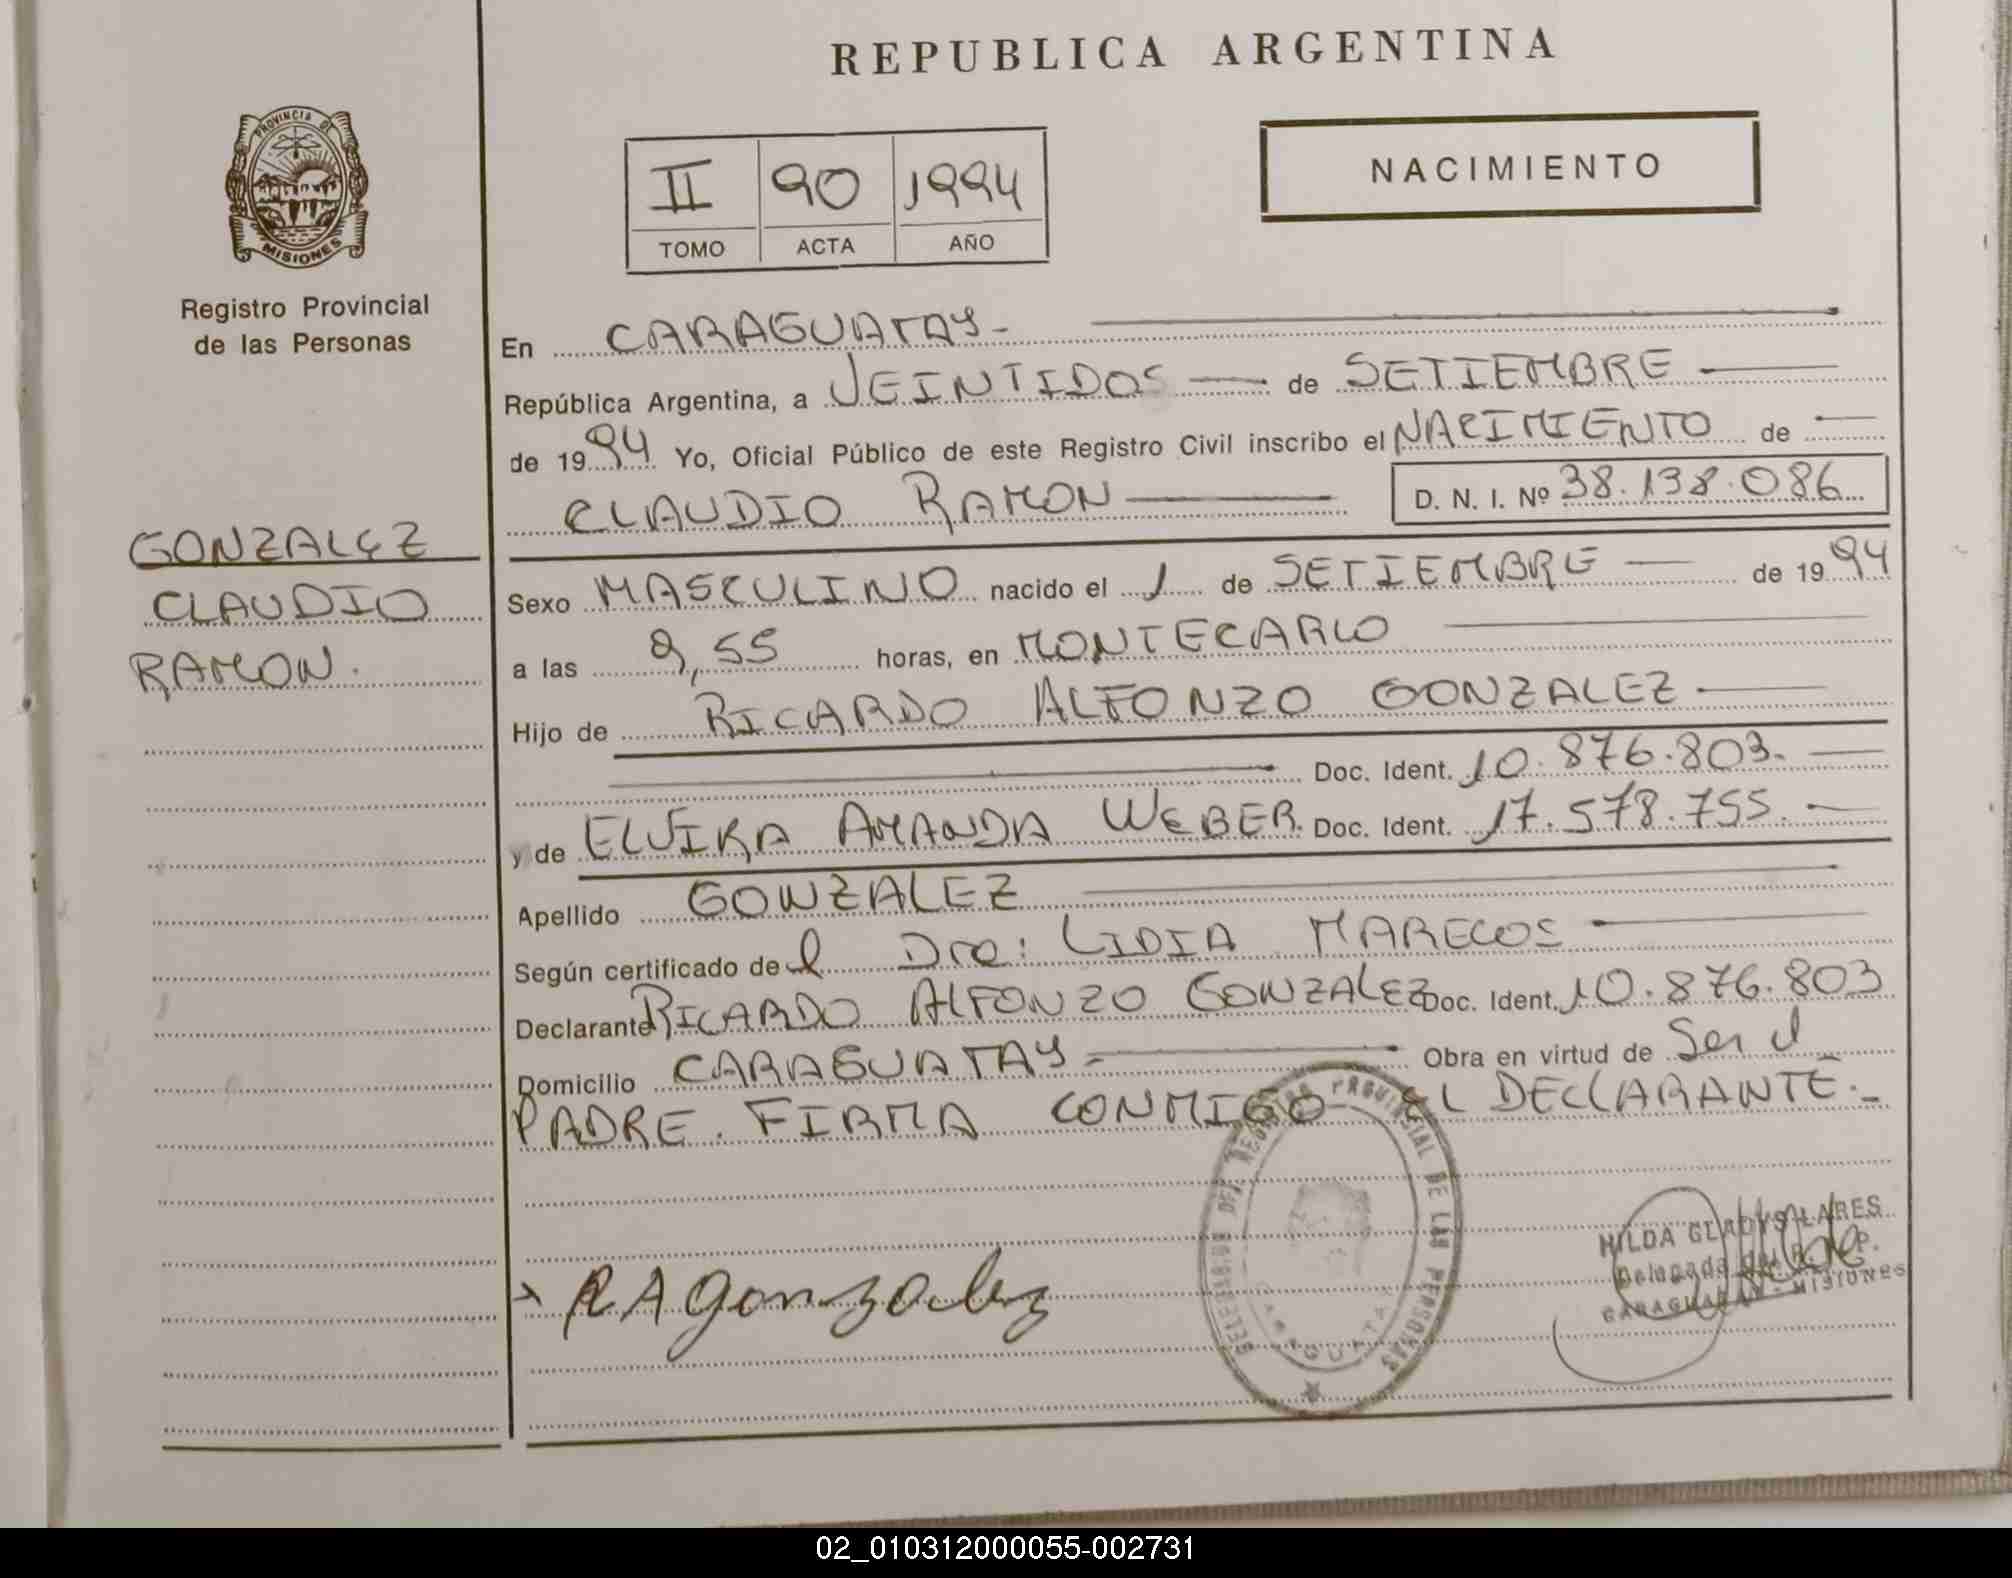 REPUBLICA ARGENTINA
PROVINCIA DE
MISIONES
Registro Provincial
de las Personas
NACIMIENTO
II 90 1994
TOMO ACTA AÑO
En CARAGUATAY-
República Argentina, a VEINTIDOS de SETIEMBRE
de 1994 Yo, Oficial Público de este Registro Civil inscribo el NACIMIENTO de
CLAUDIO RAMON D. N. I. Nº 38.138.086
GONZALEZ
CLAUDIO
RAMON.
Sexo MASCULINO nacido el 1 de SETIEMBRE de 1994
a las 9,55 horas, en MONTECARLO
Hijo de RICARDO ALFONZO GONZALEZ
Doc. Ident. 10.876.803.
y de ELVIRA AMANDA WEBER. Doc. Ident. 17.578.755.
Apellido GONZALEZ
Según certificado de l Dra: LIDIA MARECOS
Declarante RICARDO ALFONZO GONZALEZ Doc. Ident. 10.876.803
Domicilio CARAGUATAY Obra en virtud de Ser el
PADRE. FIRMA CONMIGO EL DECLARANTE.-
DEL REGISTRO PROVINCIAL DE LAS PERSONAS
CARAGUATAY
RAGonzalez
HILDA GLADYS LARES
Delegada del R. P.
CARAGUATAY - MISIONES
02_010312000055-002731